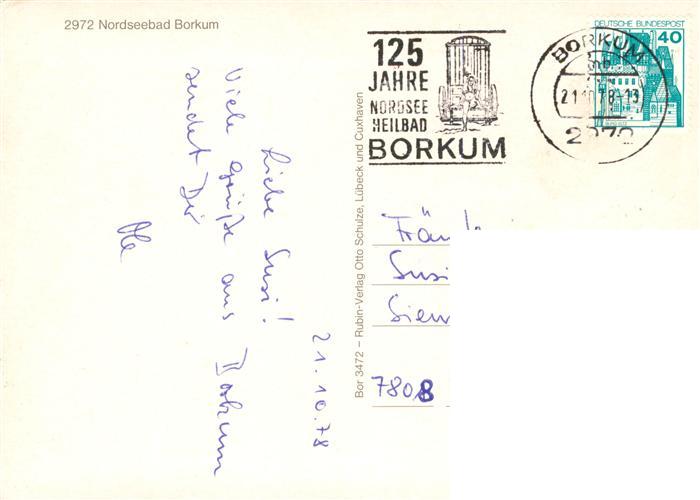 2972 Nordseebad Borkum
125
JAHRE
NORDSEE
HEILBAD
BORKUM
BORKUM
21.10.78-13
2972
DEUTSCHE BUNDESPOST
40
21.10.78
Liebe Susi!
Viele Grüße aus Borkum
sendet Dir
Bor 3472 – Rubin-Verlag Otto Schulze, Lübeck und Cuxhaven
Susi
7808